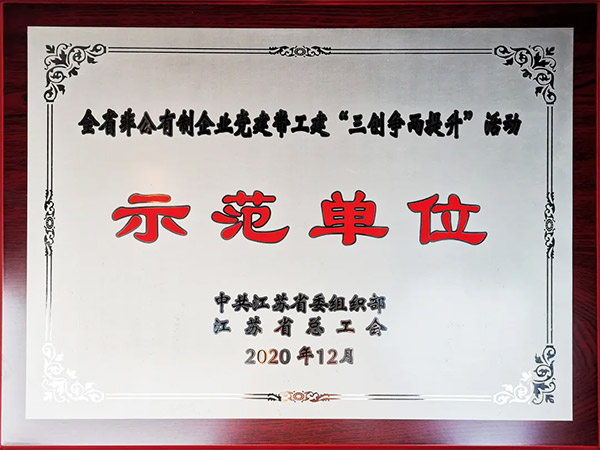 全省非公有制企业党建带工建“三创争两提升”活动
示范单位
中共江苏省委组织部
江苏省总工会
2020年12月